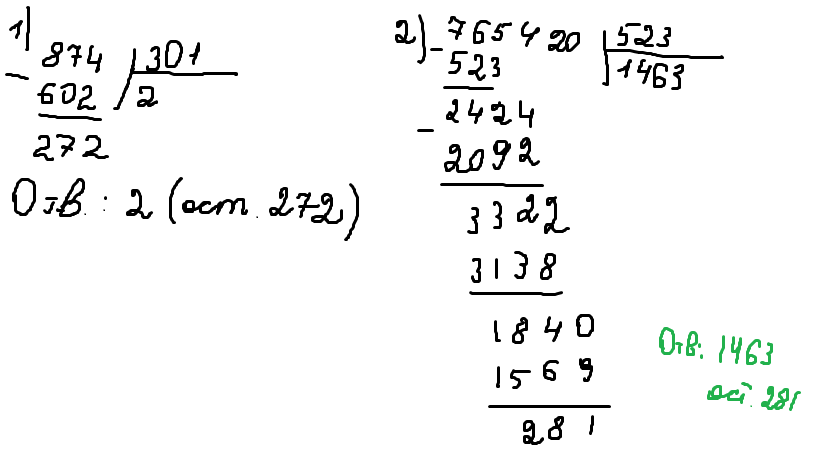 1)
874 301
602 2
272
Отв. : 2 (ост. 272)
2) 765420 523
523 1463
2424
2092
3322
3138
1840
1569
281
Отв: 1463
ост. 281